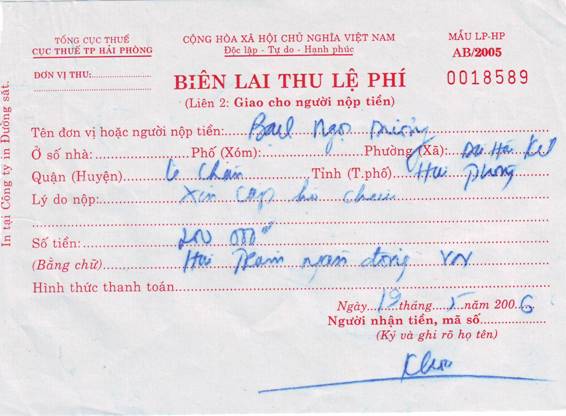 TỔNG CỤC THUẾ
CỤC THUẾ TP HẢI PHÒNG
ĐƠN VỊ THU:
CỘNG HÒA XÃ HỘI CHỦ NGHĨA VIỆT NAM
Độc lập - Tự do - Hạnh phúc
MẪU LP-HP
AB/2005
0018589
BIÊN LAI THU LỆ PHÍ
(Liên 2: Giao cho người nộp tiền)
Tên đơn vị hoặc người nộp tiền: Ngọc
Ở số nhà: Phố (Xóm): Phường (Xã):
Quận (Huyện) Lê Chân Tỉnh (T.phố) Hải Phòng
Lý do nộp: Xin cấp hộ chiếu
Số tiền: 200 000đ
(Bằng chữ) Hai trăm ngàn đồng VN
Hình thức thanh toán
Ngày 19 tháng 5 năm 2006
Người nhận tiền, mã số
(Ký và ghi rõ họ tên)
In tại Công ty in Đường sắt.